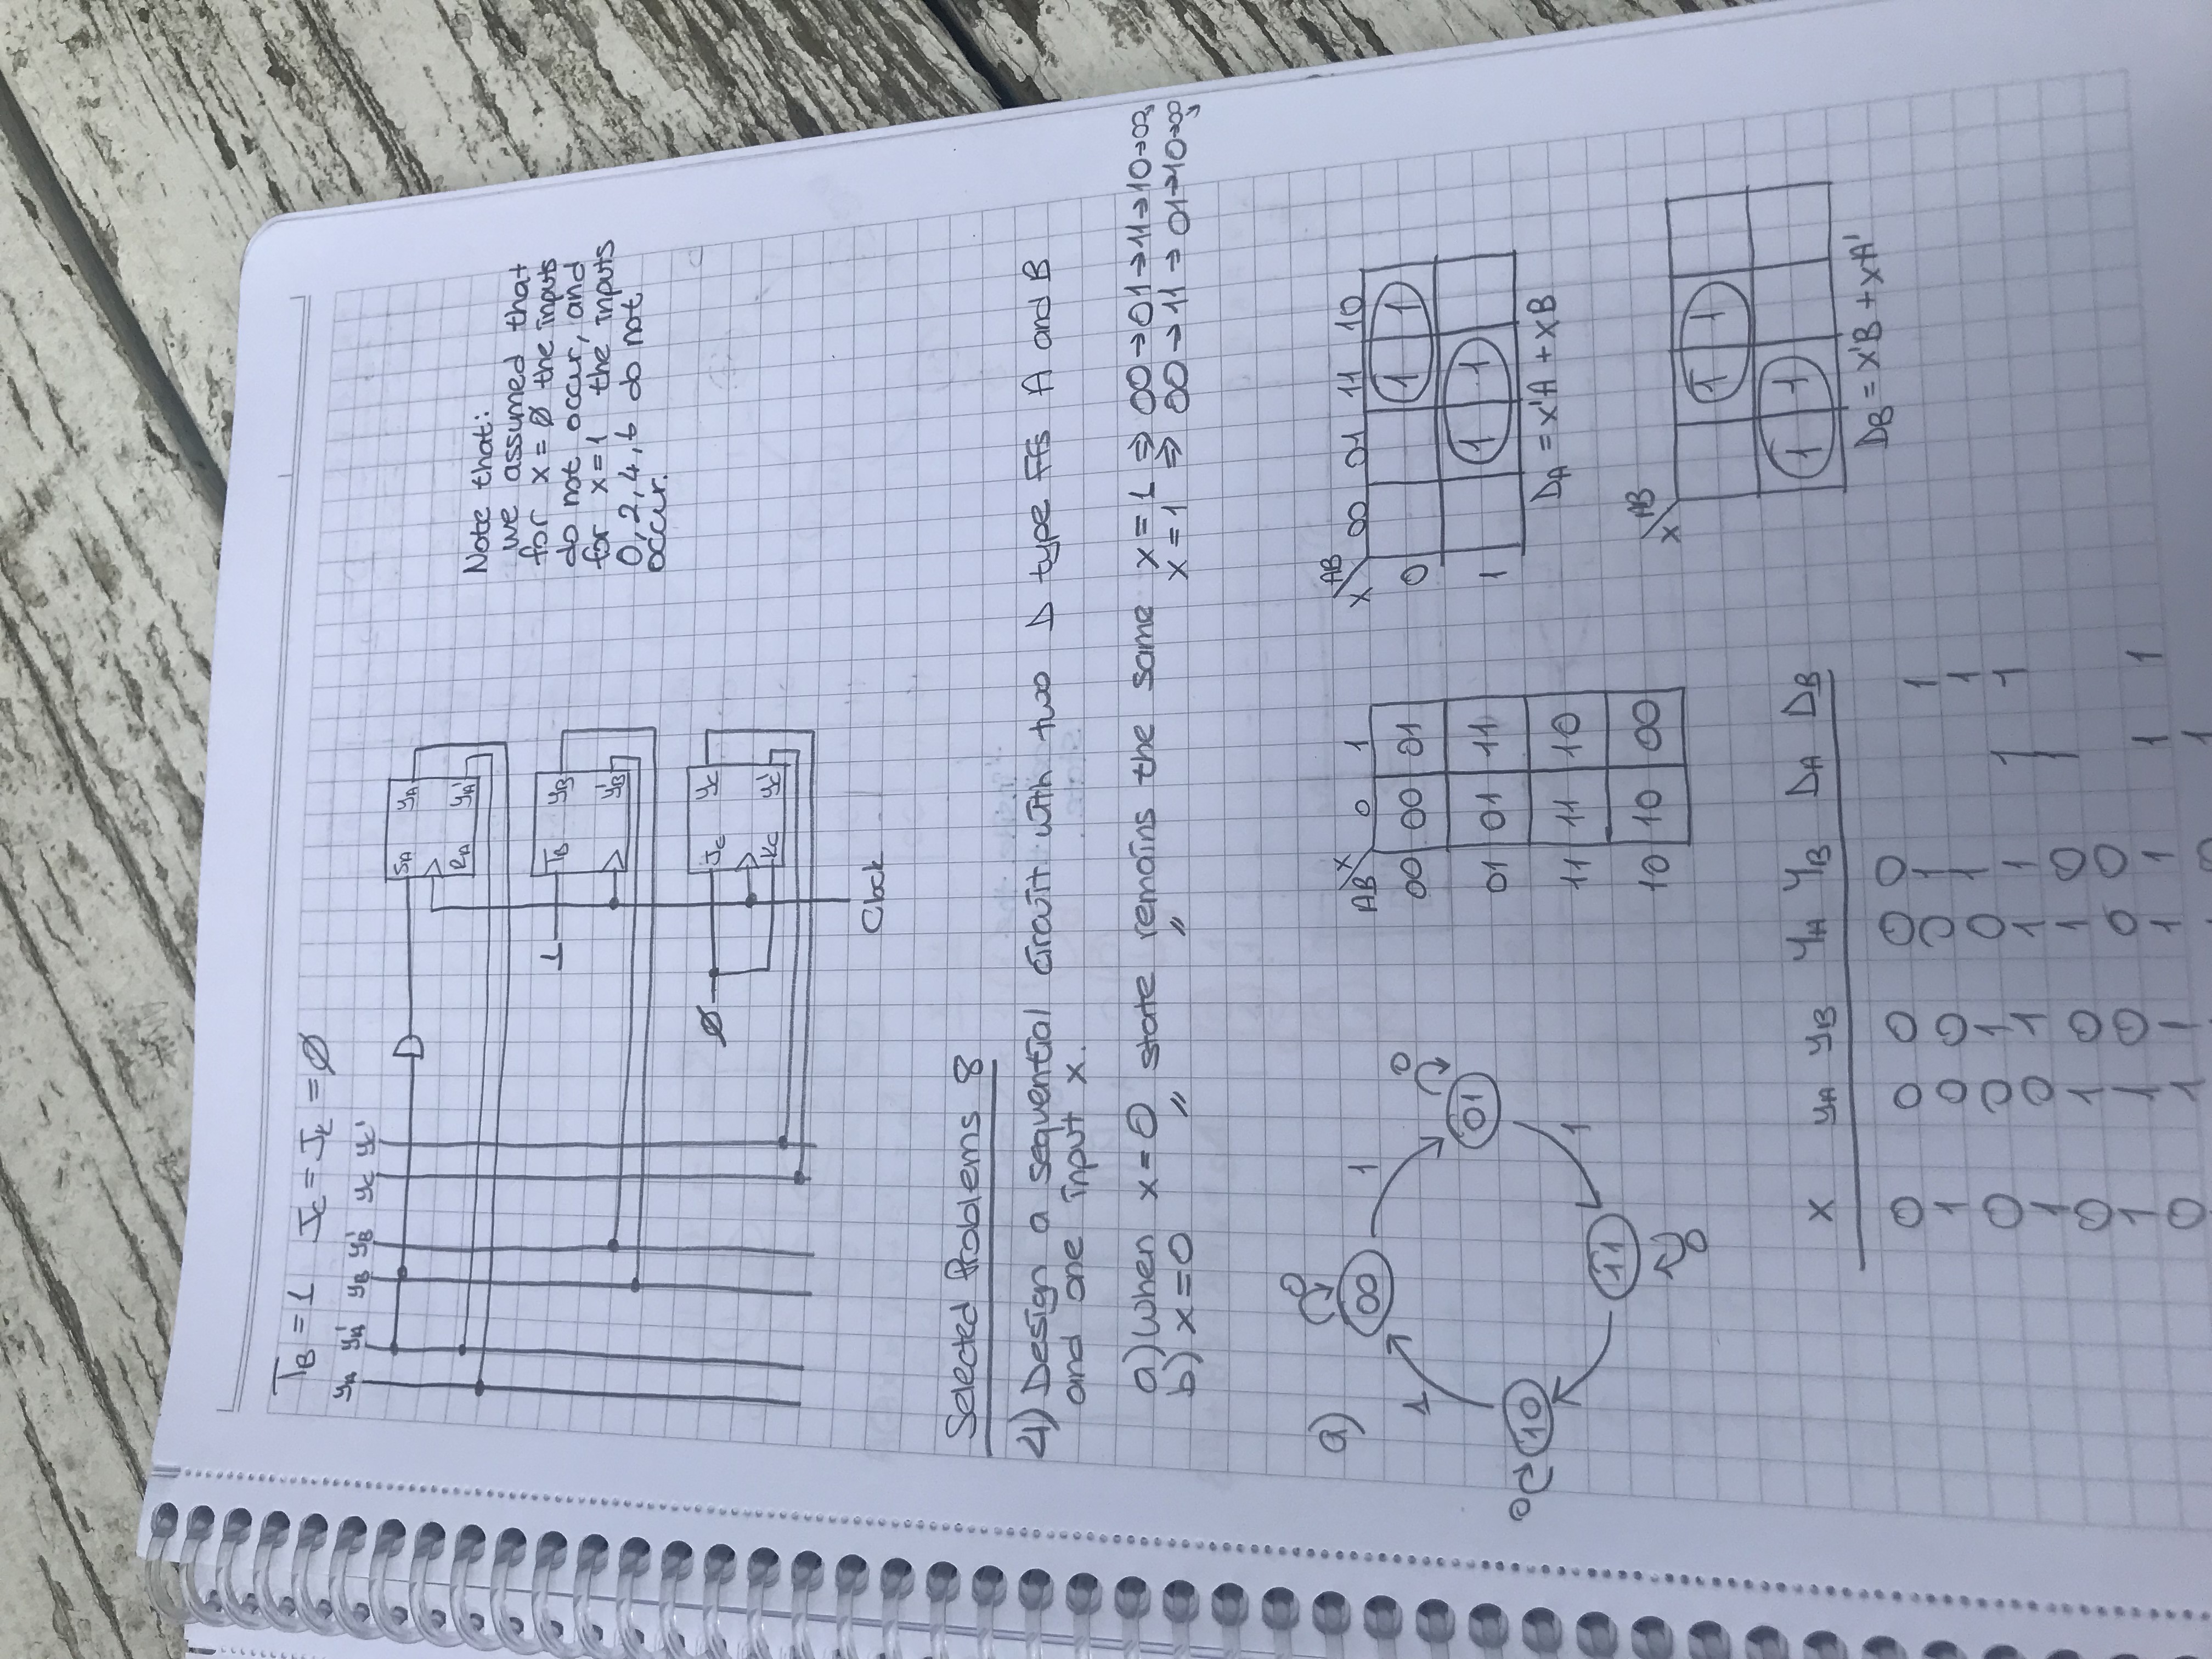 T_B = 1 J_C = J_K = Ø
y_A y_A' y_B y_B' y_C y_C'
S_A y_A
R_A y_A'
1 T_B y_B
y_B'
Ø J_C y_C
K_C y_C'
Clock
Note that:
we assumed that
for x = Ø the inputs
do not occur, and
for x = 1 the inputs
0, 2, 4, 6 do not
occur.
Selected Problems 8
4) Design a sequential circuit with two D type FFs A and B
and one input x.
a) When x = 0 state remains the same x = 1 ⇒ 00→01→11→10→00,
b) x = 0 " " x = 1 ⇒ 00→11→01→10→00,
a)
0
00
1
0
01
1
11
0
10
0
1
AB\x 0 1
00 00 01
01 01 11
11 11 10
10 10 00
x\AB 00 01 11 10
0 1 1
1 1 1
D_A = x'A + xB
x\AB
1 1
1 1
D_B = x'B + xA'
x y_A y_B Y_A Y_B D_A D_B
0 0 0 0 0
1 0 0 0 1 1
0 0 1 0 1 1
1 0 1 1 1 1 1
0 1 0 1 0 1
1 1 0 0 0
0 1 1 1 1 1 1